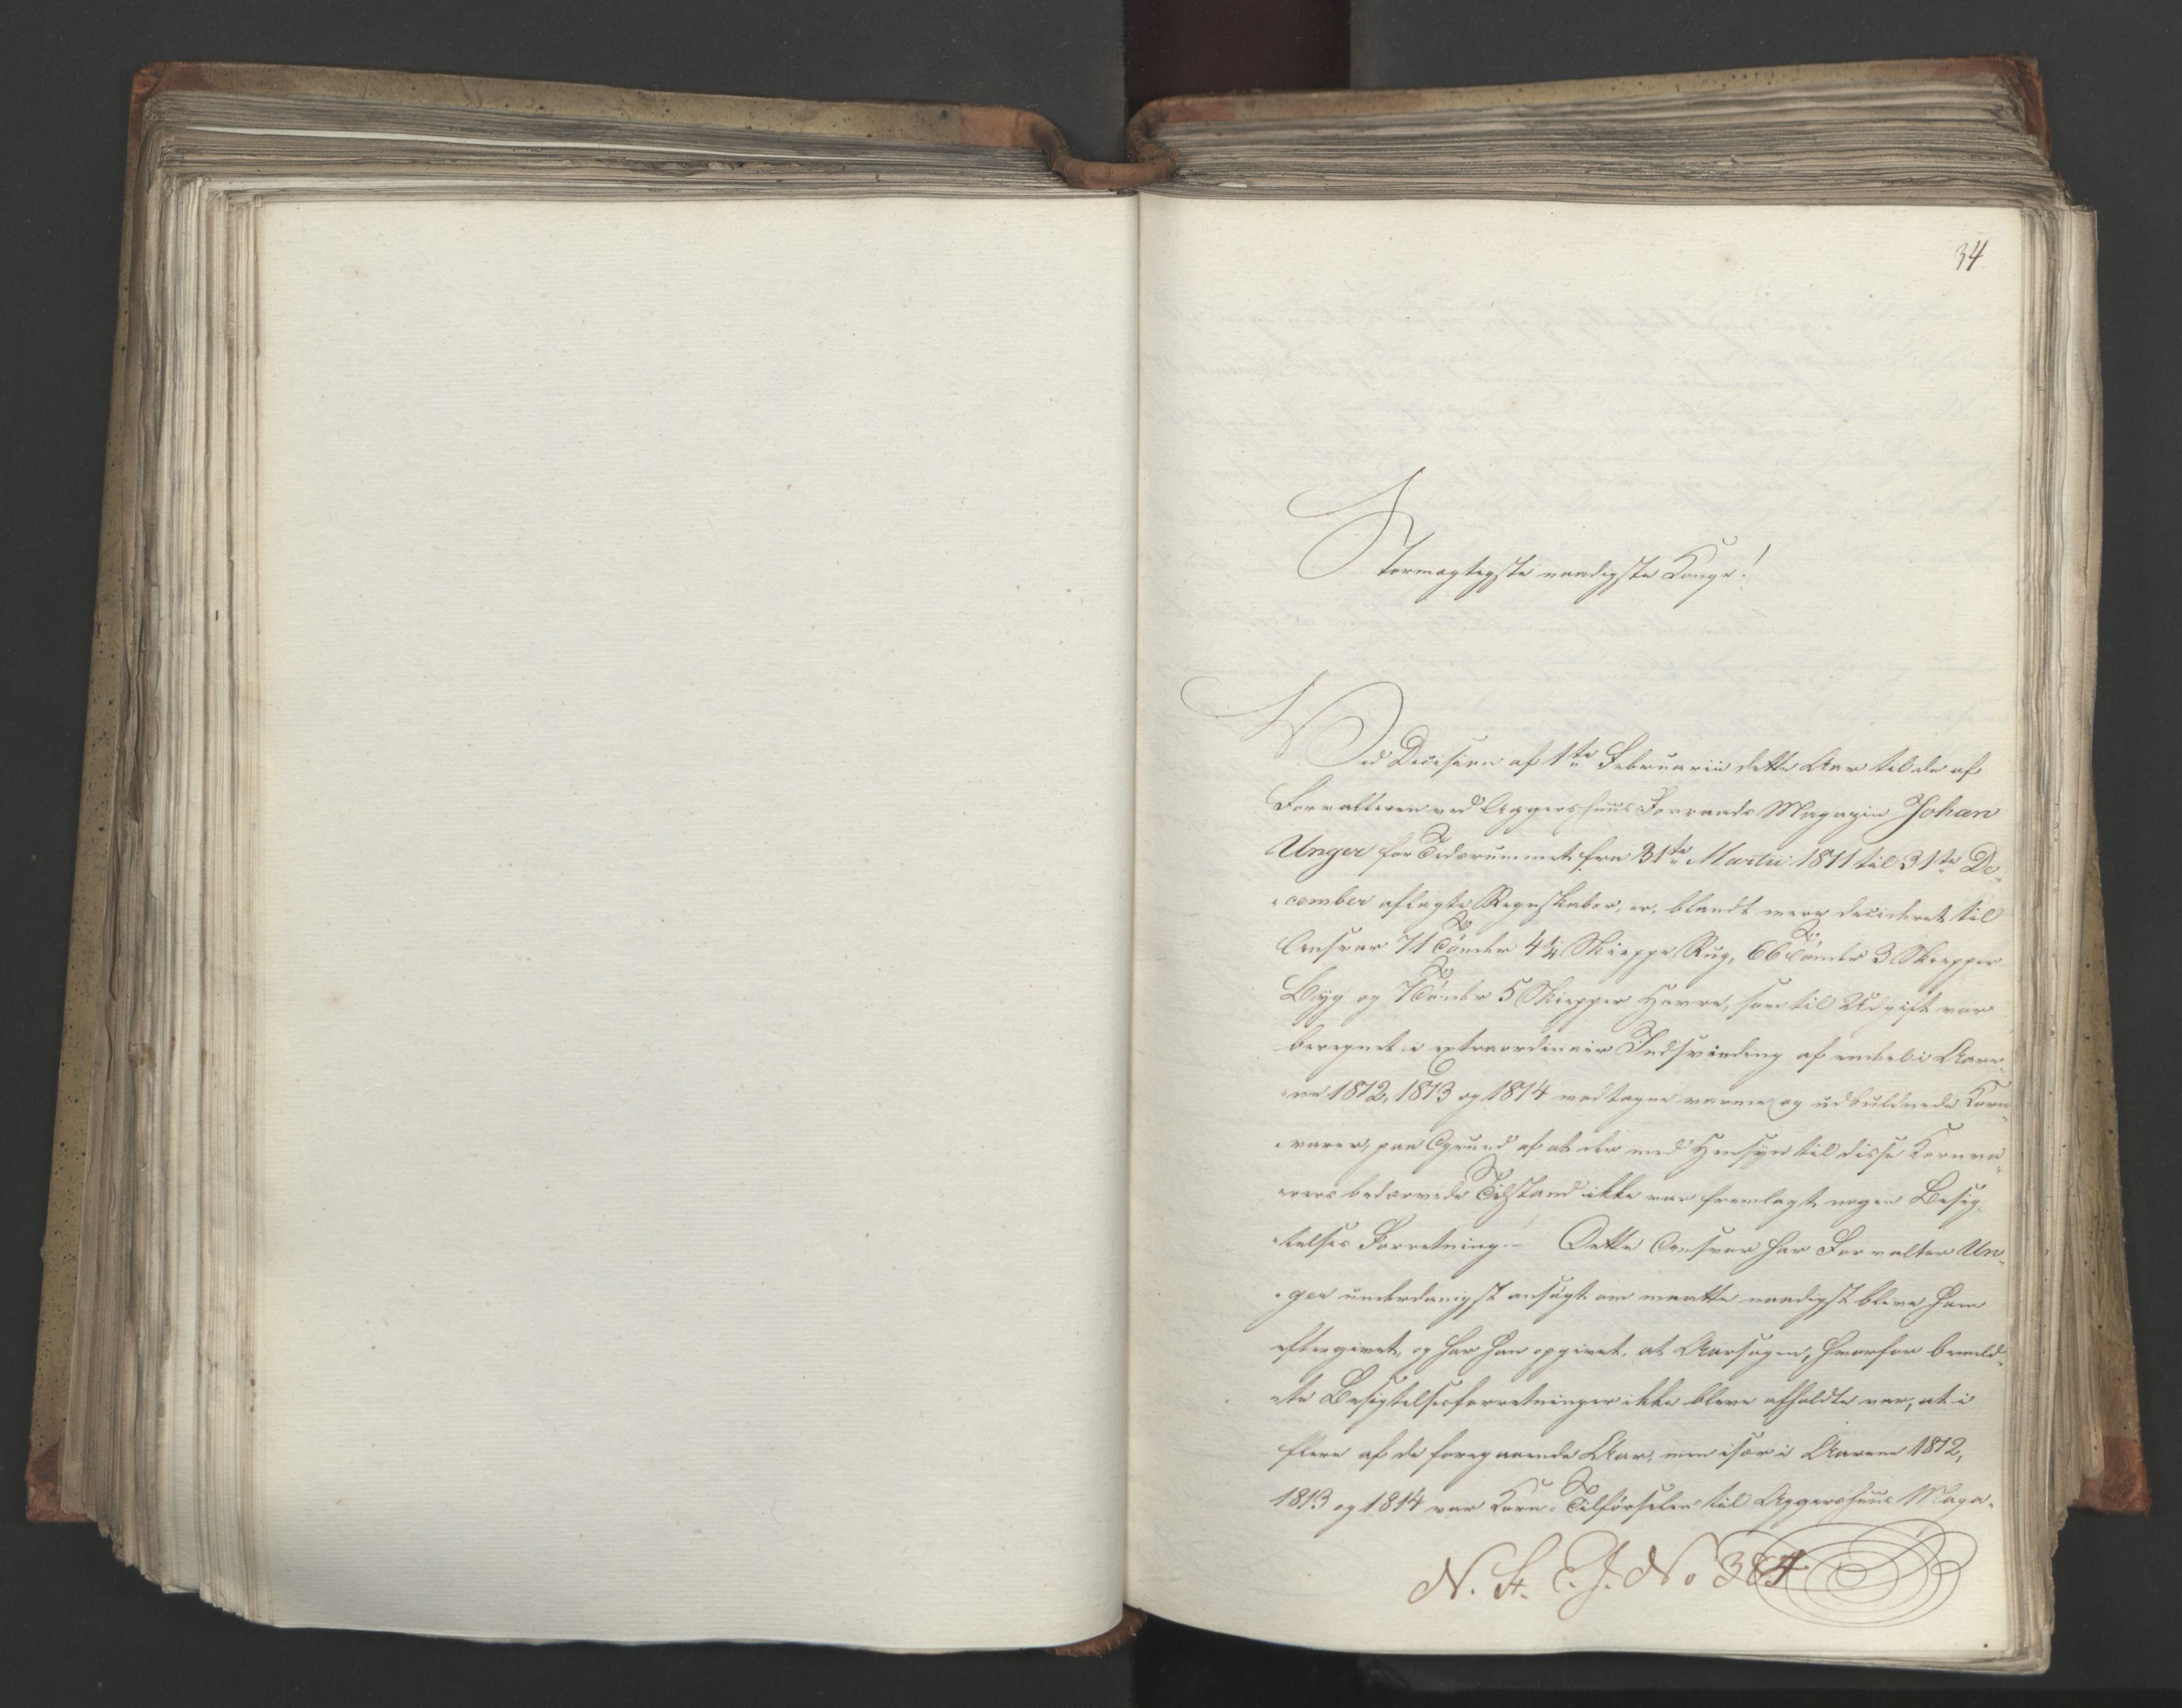 34
Stormægtigste naadigste Konge!
Ved Decision af 1te Februarii dette Aar til de af
Forvalteren ved Aggershuus Forraads Magazin Johan
Unger for Tidsrummet fra 31te Martii 1811 til 31te De-
cember aflagte Regnskaber, er, blandt mere decideret til
Ansvar 71 Tønder 4¼ Skieppe Rug, 66 Tønder 3 Skiepper
Byg og 7 Tønder 5 Skiepper Havre, som til Udgift var
beregnet i extraordinair Indsvinding af endeel i Aare-
ne 1812, 1813 og 1814 modtagne varme og udbuldnede Korn-
varer, paa Grund af at der med Hensyn til disse Kornva-
rers bedærvede Tilstand ikke var fremlagt nogen Besig-
telses Forretning. – Dette Ansvar har Forvalter Un-
ger underdanigst ansøgt om maatte naadigst blive ham
eftergivet, og har han opgivet, at Aarsagen, hvorfor bemeld-
te Besigtelsesforretninger ikke bleve afholdte var, at i
flere af de foregaaende Aar, men især i Aarene 1812,
1813 og 1814 var Korn-Tilførselen til Aggershuus Maga-
N. St. E. J. No 384